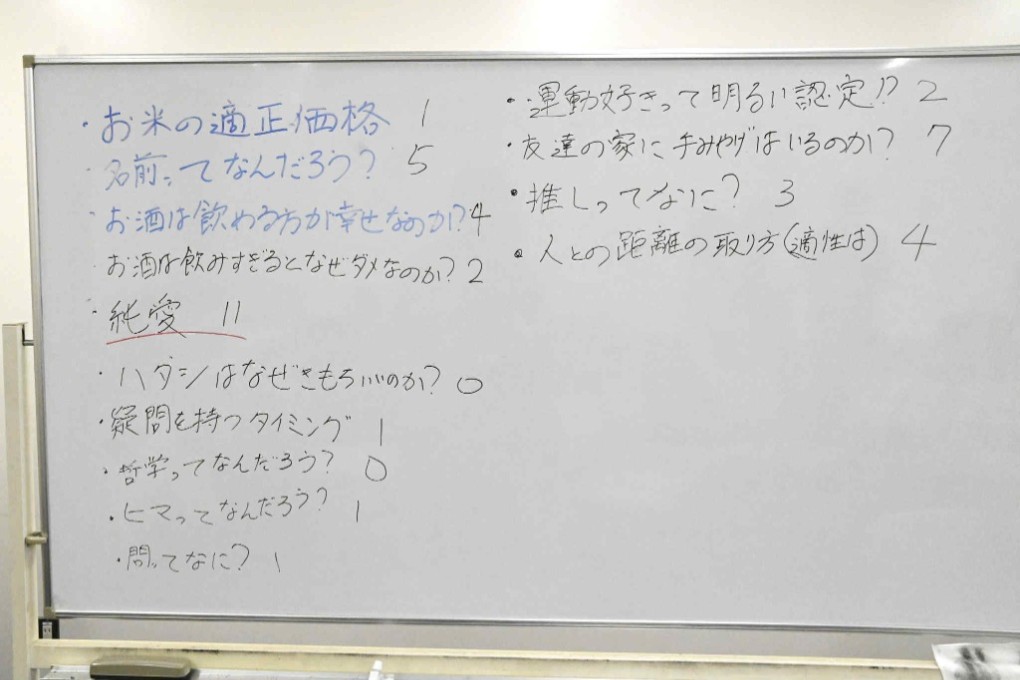 ・お米の適正価格 1
・名前ってなんだろう? 5
・お酒は飲める方が幸せなのか? 4
お酒は飲みすぎるとなぜダメなのか? 2
・純愛 11
・ハダシはなぜきもちいいのか? 0
・疑問を持つタイミング 1
・哲学ってなんだろう? 0
・ヒマってなんだろう? 1
・問ってなに? 1
・運動好きって明るい認定!? 2
・友達の家に手みやげはいるのか? 7
・推しってなに? 3
・人との距離の取り方(適性は) 4